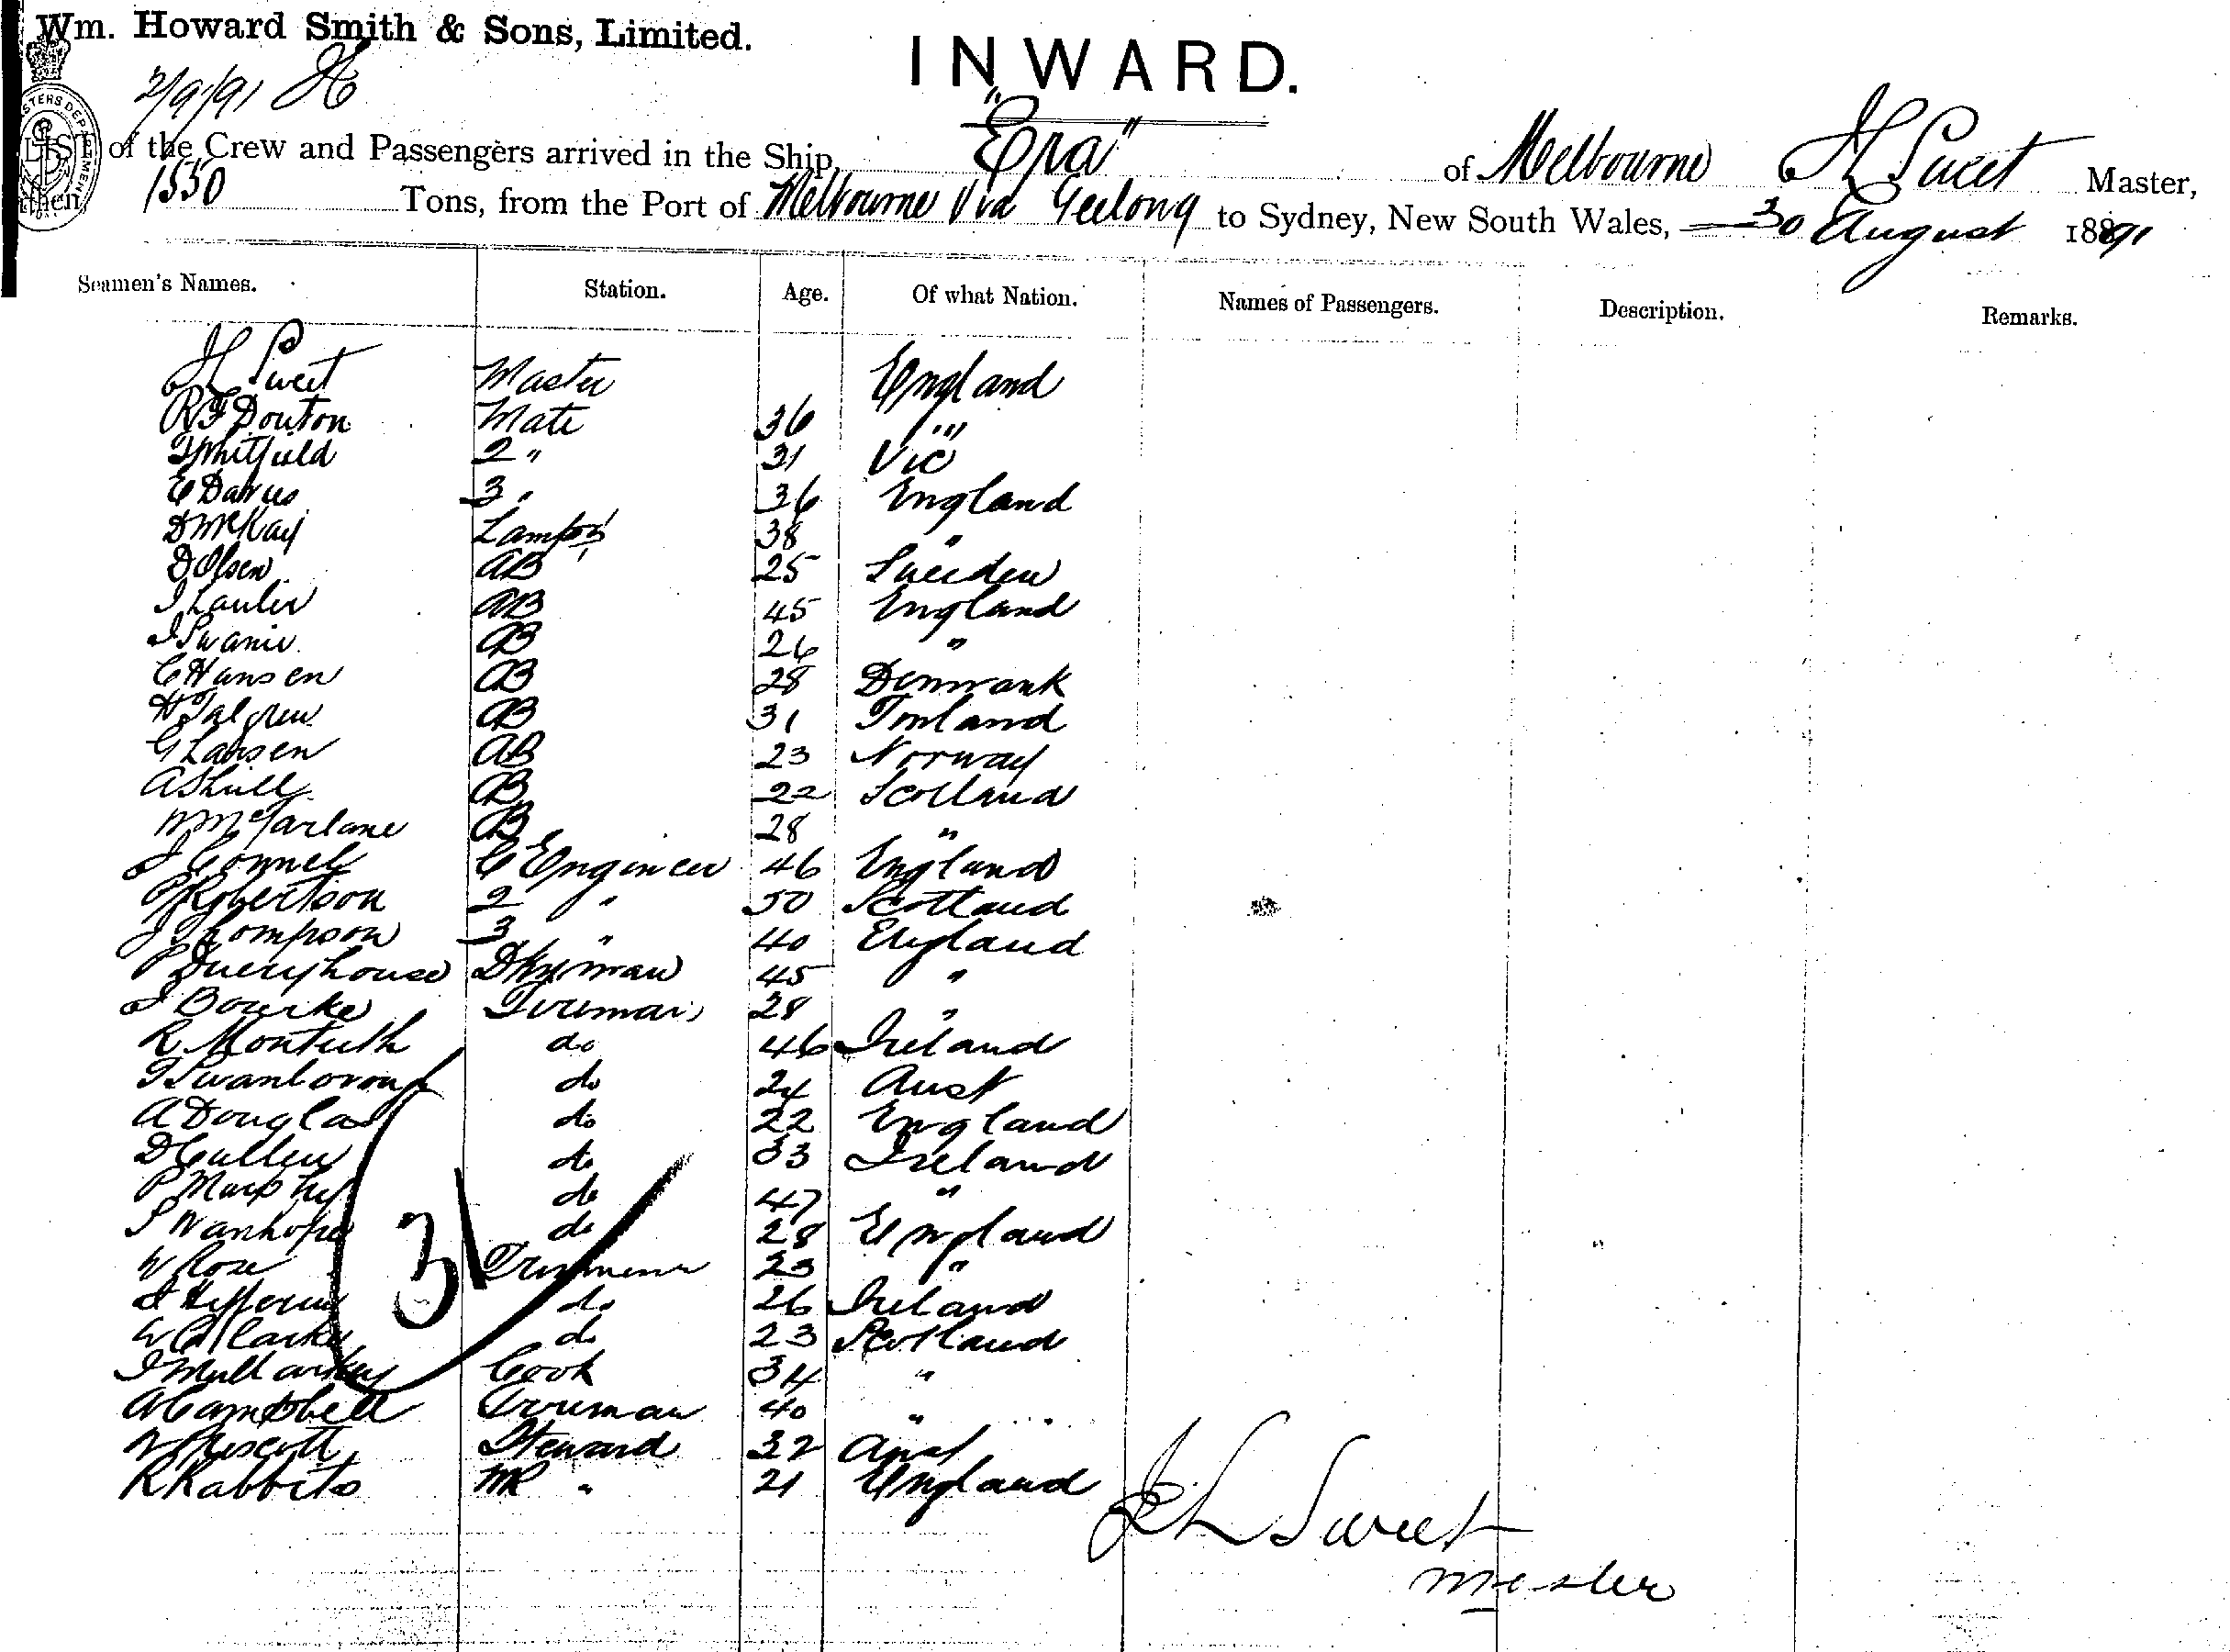 Wm. Howard Smith & Sons, Limited.
INWARD.
2/9/91
LIST of the Crew and Passengers arrived in the Ship "Era" of Melbourne H Sweet Master,
then 1550 Tons, from the Port of Melbourne Via Geelong to Sydney, New South Wales, 30 August 1891
Seamen's Names. Station. Age. Of what Nation. Names of Passengers. Description. Remarks.
H Sweet Master England
R F Douton Mate 36 "
T Whitfield 2 " 31 Vic
E Davies 3 " 36 England
D McKay Lamps 38 "
D Olsen AB 25 Sweeden
J Lauler AB 45 England
J Swanie AB 26 "
C Hansen AB 28 Denmark
H Talgren AB 31 Finland
G Larsen AB 23 Norway
A Shiell AB 22 Scotland
W McFarlane AB 28 "
J Connel C Engineer 46 England
P Robertson 2 " 50 Scotland
J Thompson 3 " 40 England
P Dueryhouse Dkyman 45 "
J Bourke Fireman 28 "
R Monteith do 46 Ireland
T Swanborough do 24 Aust
A Douglas do 22 England
D Cullen do 33 Ireland
P Murphy do 47 "
S Wanhope do 28 England
W Rose Trimmer 23 "
J Heffernan do 26 Ireland
W Clarke do 23 Scotland
J Mullarkey Cook 34 "
A Campbell Fireman 40 "
W Prescott Steward 32 Aust
R Rabbits MR " 21 England
31
H Sweet
Master